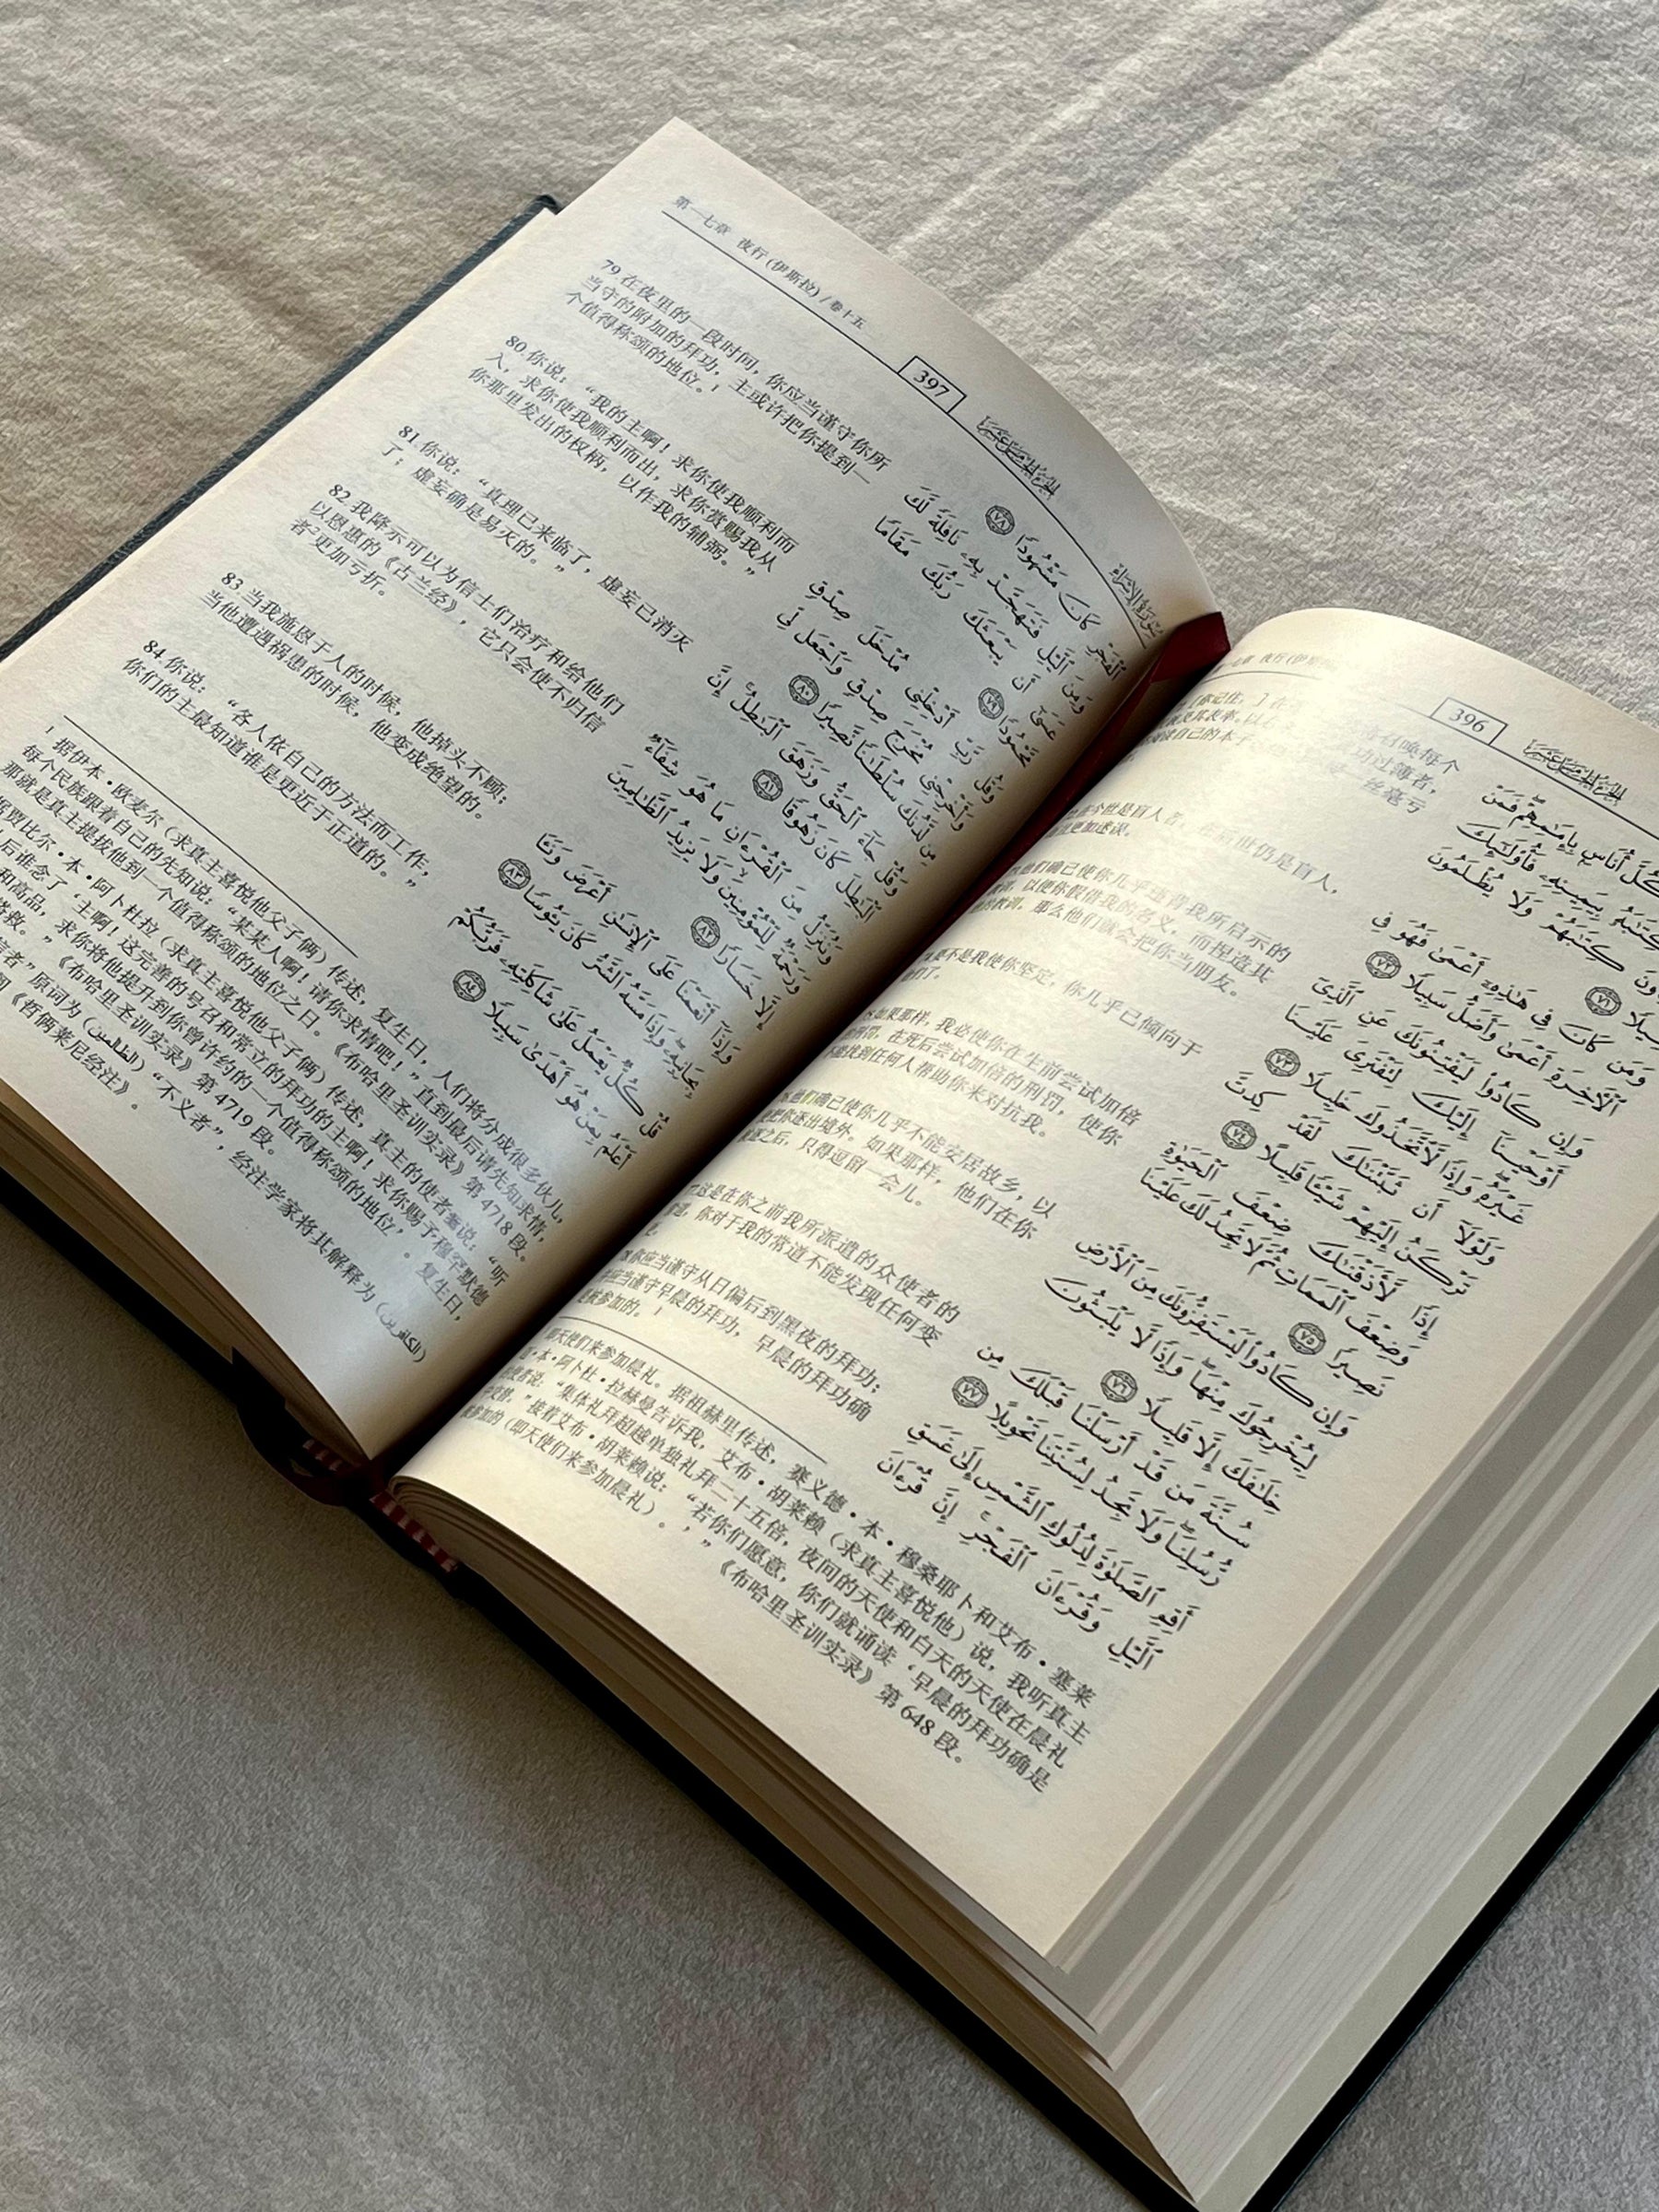 夜行 (伊斯
396
召唤每个
功过簿者,
一丝毫亏
在今世是盲人者, 在后世仍是盲人,
更加迷误。
他们确已使你几乎违背我所启示的
以便你假借我的名义, 而捏造其
教训, 那么他们就会把你当朋友。
要不是我使你坚定, 你几乎已倾向于
们了。
如果那样, 我必使你在生前尝试加倍
刑罚, 在死后尝试加倍的刑罚, 使你
找到任何人帮助你来对抗我。
他们确已使你几乎不能安居故乡, 以
把你逐出境外。如果那样, 他们在你
逐之后, 只得逗留一会儿。
这是在你之前我所派遣的众使者的
道, 你对于我的常道不能发现任何变
化。
你应当谨守从日偏后到黑夜的拜功;
应当谨守早晨的拜功, 早晨的拜功确
是被参加的。¹
كُلَّ أُنَاسٍ بِإِمَـٰمِهِمْ فَمَنْ
كِتَـٰبَهُۥ بِيَمِينِهِۦ فَأُو۟لَـٰٓئِكَ
كِتَـٰبَهُمْ وَلَا يُظْلَمُونَ
٧١
وَمَن كَانَ فِى هَـٰذِهِۦٓ أَعْمَىٰ فَهُوَ فِى
ٱلْـَٔاخِرَةِ أَعْمَىٰ وَأَضَلُّ سَبِيلًا ٧٢
وَإِن كَادُوا۟ لَيَفْتِنُونَكَ عَنِ ٱلَّذِىٓ
أَوْحَيْنَآ إِلَيْكَ لِتَفْتَرِىَ عَلَيْنَا
غَيْرَهُۥ وَإِذًا لَّٱتَّخَذُوكَ خَلِيلًا ٧٣
وَلَوْلَآ أَن ثَبَّتْنَـٰكَ لَقَدْ كِدتَّ
تَرْكَنُ إِلَيْهِمْ شَيْـًٔا قَلِيلًا ٧٤
إِذًا لَّأَذَقْنَـٰكَ ضِعْفَ ٱلْحَيَوٰةِ
وَضِعْفَ ٱلْمَمَاتِ ثُمَّ لَا تَجِدُ لَكَ عَلَيْنَا
نَصِيرًا ٧٥
وَإِن كَادُوا۟ لَيَسْتَفِزُّونَكَ مِنَ ٱلْأَرْضِ
لِيُخْرِجُوكَ مِنْهَا وَإِذًا لَّا يَلْبَثُونَ
خِلَـٰفَكَ إِلَّا قَلِيلًا ٧٦
سُنَّةَ مَن قَدْ أَرْسَلْنَا قَبْلَكَ مِن
رُّسُلِنَا وَلَا تَجِدُ لِسُنَّتِنَا تَحْوِيلًا ٧٧
أَقِمِ ٱلصَّلَوٰةَ لِدُلُوكِ ٱلشَّمْسِ إِلَىٰ غَسَقِ
ٱلَّيْلِ وَقُرْءَانَ ٱلْفَجْرِ إِنَّ قُرْءَانَ
天使们来参加晨礼。据祖赫里传述, 赛义德·本·穆桑耶卜和艾布·塞莱
·本·阿卜杜·拉赫曼告诉我, 艾布·胡莱赖 (求真主喜悦他) 说, 我听真主
使者说: “集体礼拜超越单独礼拜二十五倍, 夜间的天使和白天的天使在晨礼
交替。”接着艾布·胡莱赖说: “若你们愿意, 你们就诵读 ‘早晨的拜功确是
被参加的 (即天使们来参加晨礼) 。’” 《布哈里圣训实录》第 648 段。
第一七章 夜行 (伊斯拉) / 卷十五
397
سُورَةُ الإِسْرَاءِ
79 在夜里的一段时间, 你应当谨守你所
当守的附加的拜功, 主或许把你提到一
个值得称颂的地位。¹
80 你说: “我的主啊! 求你使我顺利而
入, 求你使我顺利而出, 求你赏赐我从
你那里发出的权柄, 以作我的辅弼。”
81 你说: “真理已来临了, 虚妄已消灭
了; 虚妄确是易灭的。”
82 我降示可以为信士们治疗和给他们
以恩惠的《古兰经》, 它只会使不归信
者²更加亏折。
83 当我施恩于人的时候, 他掉头不顾;
当他遭遇祸患的时候, 他变成绝望的。
84 你说: “各人依自己的方法而工作,
你们的主最知道谁是更近于正道的。”
ٱلْفَجْرِ كَانَ مَشْهُودًا ٧٨
وَمِنَ ٱلَّيْلِ فَتَهَجَّدْ بِهِۦ نَافِلَةً لَّكَ
عَسَىٰٓ أَن يَبْعَثَكَ رَبُّكَ مَقَامًا
مَّحْمُودًا ٧٩
وَقُل رَّبِّ أَدْخِلْنِى مُدْخَلَ صِدْقٍ
وَأَخْرِجْنِى مُخْرَجَ صِدْقٍ وَٱجْعَل لِّى
مِن لَّدُنكَ سُلْطَـٰنًا نَّصِيرًا ٨٠
وَقُلْ جَآءَ ٱلْحَقُّ وَزَهَقَ ٱلْبَـٰطِلُ إِنَّ
ٱلْبَـٰطِلَ كَانَ زَهُوقًا ٨١
وَنُنَزِّلُ مِنَ ٱلْقُرْءَانِ مَا هُوَ شِفَآءٌ
وَرَحْمَةٌ لِّلْمُؤْمِنِينَ وَلَا يَزِيدُ ٱلظَّـٰلِمِينَ
إِلَّا خَسَارًا ٨٢
وَإِذَآ أَنْعَمْنَا عَلَى ٱلْإِنسَـٰنِ أَعْرَضَ وَنَـَٔا
بِجَانِبِهِۦ وَإِذَا مَسَّهُ ٱلشَّرُّ كَانَ يَـُٔوسًا ٨٣
قُلْ كُلٌّ يَعْمَلُ عَلَىٰ شَاكِلَتِهِۦ فَرَبُّكُمْ
أَعْلَمُ بِمَنْ هُوَ أَهْدَىٰ سَبِيلًا ٨٤
1 据伊本·欧麦尔 (求真主喜悦他父子俩) 传述, 复生日, 人们将分成很多伙儿,
每个民族跟着自己的先知说: “某某人啊! 请你求情吧! ” 直到最后请先知求情,
那就是真主提拔他到一个值得称颂的地位之日。《布哈里圣训实录》第 4718 段。
据贾比尔·本·阿卜杜拉 (求真主喜悦他父子俩) 传述, 真主的使者说: “听
后谁念了 ‘主啊! 这完善的号召和常立的拜功的主啊! 求你赐予穆罕默德
和高品, 求你将他提升到你曾许约的一个值得称颂的地位’ 。复生日,
搭救。” 《布哈里圣训实录》第 4719 段。
信者” 原词为 (الظالمين) “不义者”, 经注学家将其解释为 (الكافرين)
《哲俩莱尼经注》。